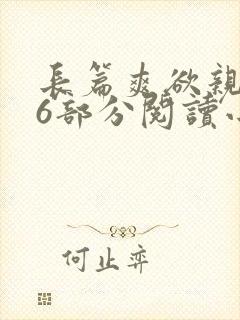 長篇爽欲親
6部分閱讀小
何止弈